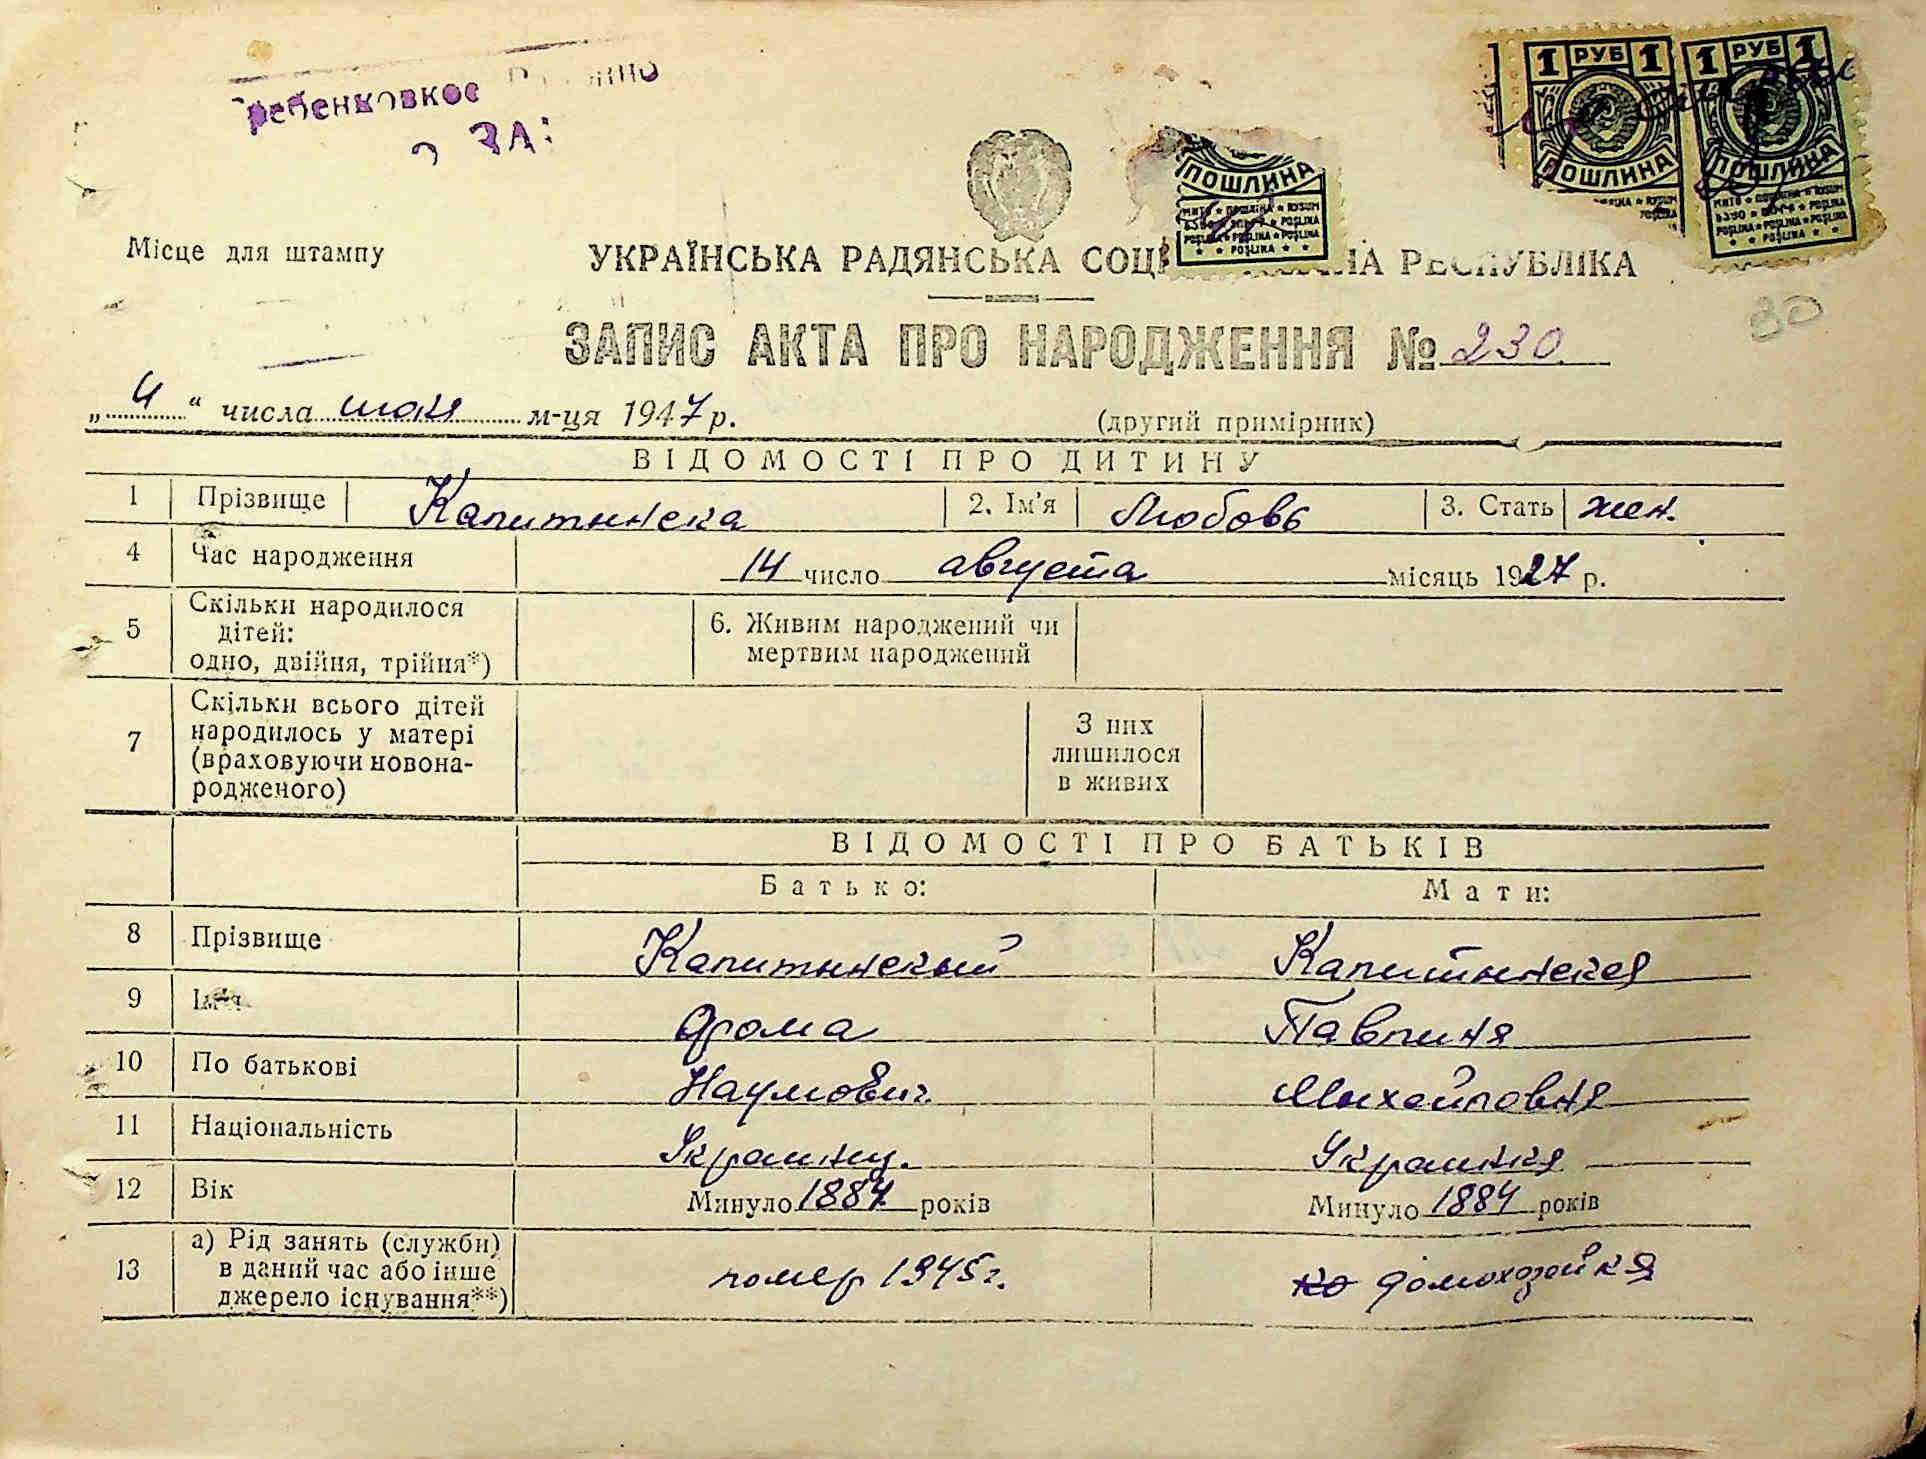 ребенковкое
ЗАГ
1 РУБ 1
1 РУБ 1
ПОШЛИНА
ПОШЛИНА
ПОШЛИНА
Місце для штампу
УКРАЇНСЬКА РАДЯНСЬКА СОЦІ НА РЕСПУБЛІКА
80
ЗАПИС АКТА ПРО НАРОДЖЕННЯ № 230
„ 4 “ числа мая м-ця 1947 р.
(другий примірник)
ВІДОМОСТІ ПРО ДИТИНУ
1 Прізвище Капитинска 2. Ім'я Любовь 3. Стать жен.
4 Час народження 14 число августа місяць 1927 р.
5 Скільки народилося дітей: одно, двійня, трійня*) 6. Живим народжений чи мертвим народжений
7 Скільки всього дітей народилось у матері (враховуючи новона-родженого) З них лишилося в живих
ВІДОМОСТІ ПРО БАТЬКІВ
Батько: Мати:
8 Прізвище Капитинский Капитинская
9 Ім'я Фома Павлиня
10 По батькові Наумович Михайловня
11 Національність Украинц. Украинкя
12 Вік Минуло 1884 років Минуло 1884 років
13 а) Рід занять (служби) в даний час або інше джерело існування**) помер 1945 г. ко домохозяйкя